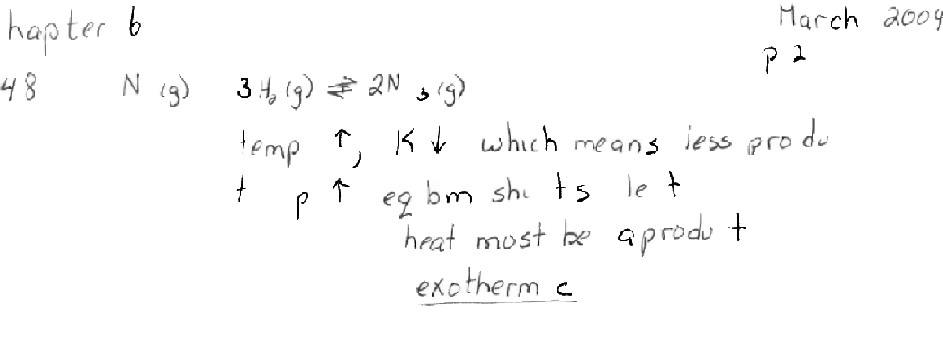 hapter 6
March 2009
p 2
48 N (g) 3H₂(g) ⇌ 2N 3(g)
temp ↑, K↓ which means less produ
t p ↑ eqbm shi ts le t
heat must be a produ t
exotherm c